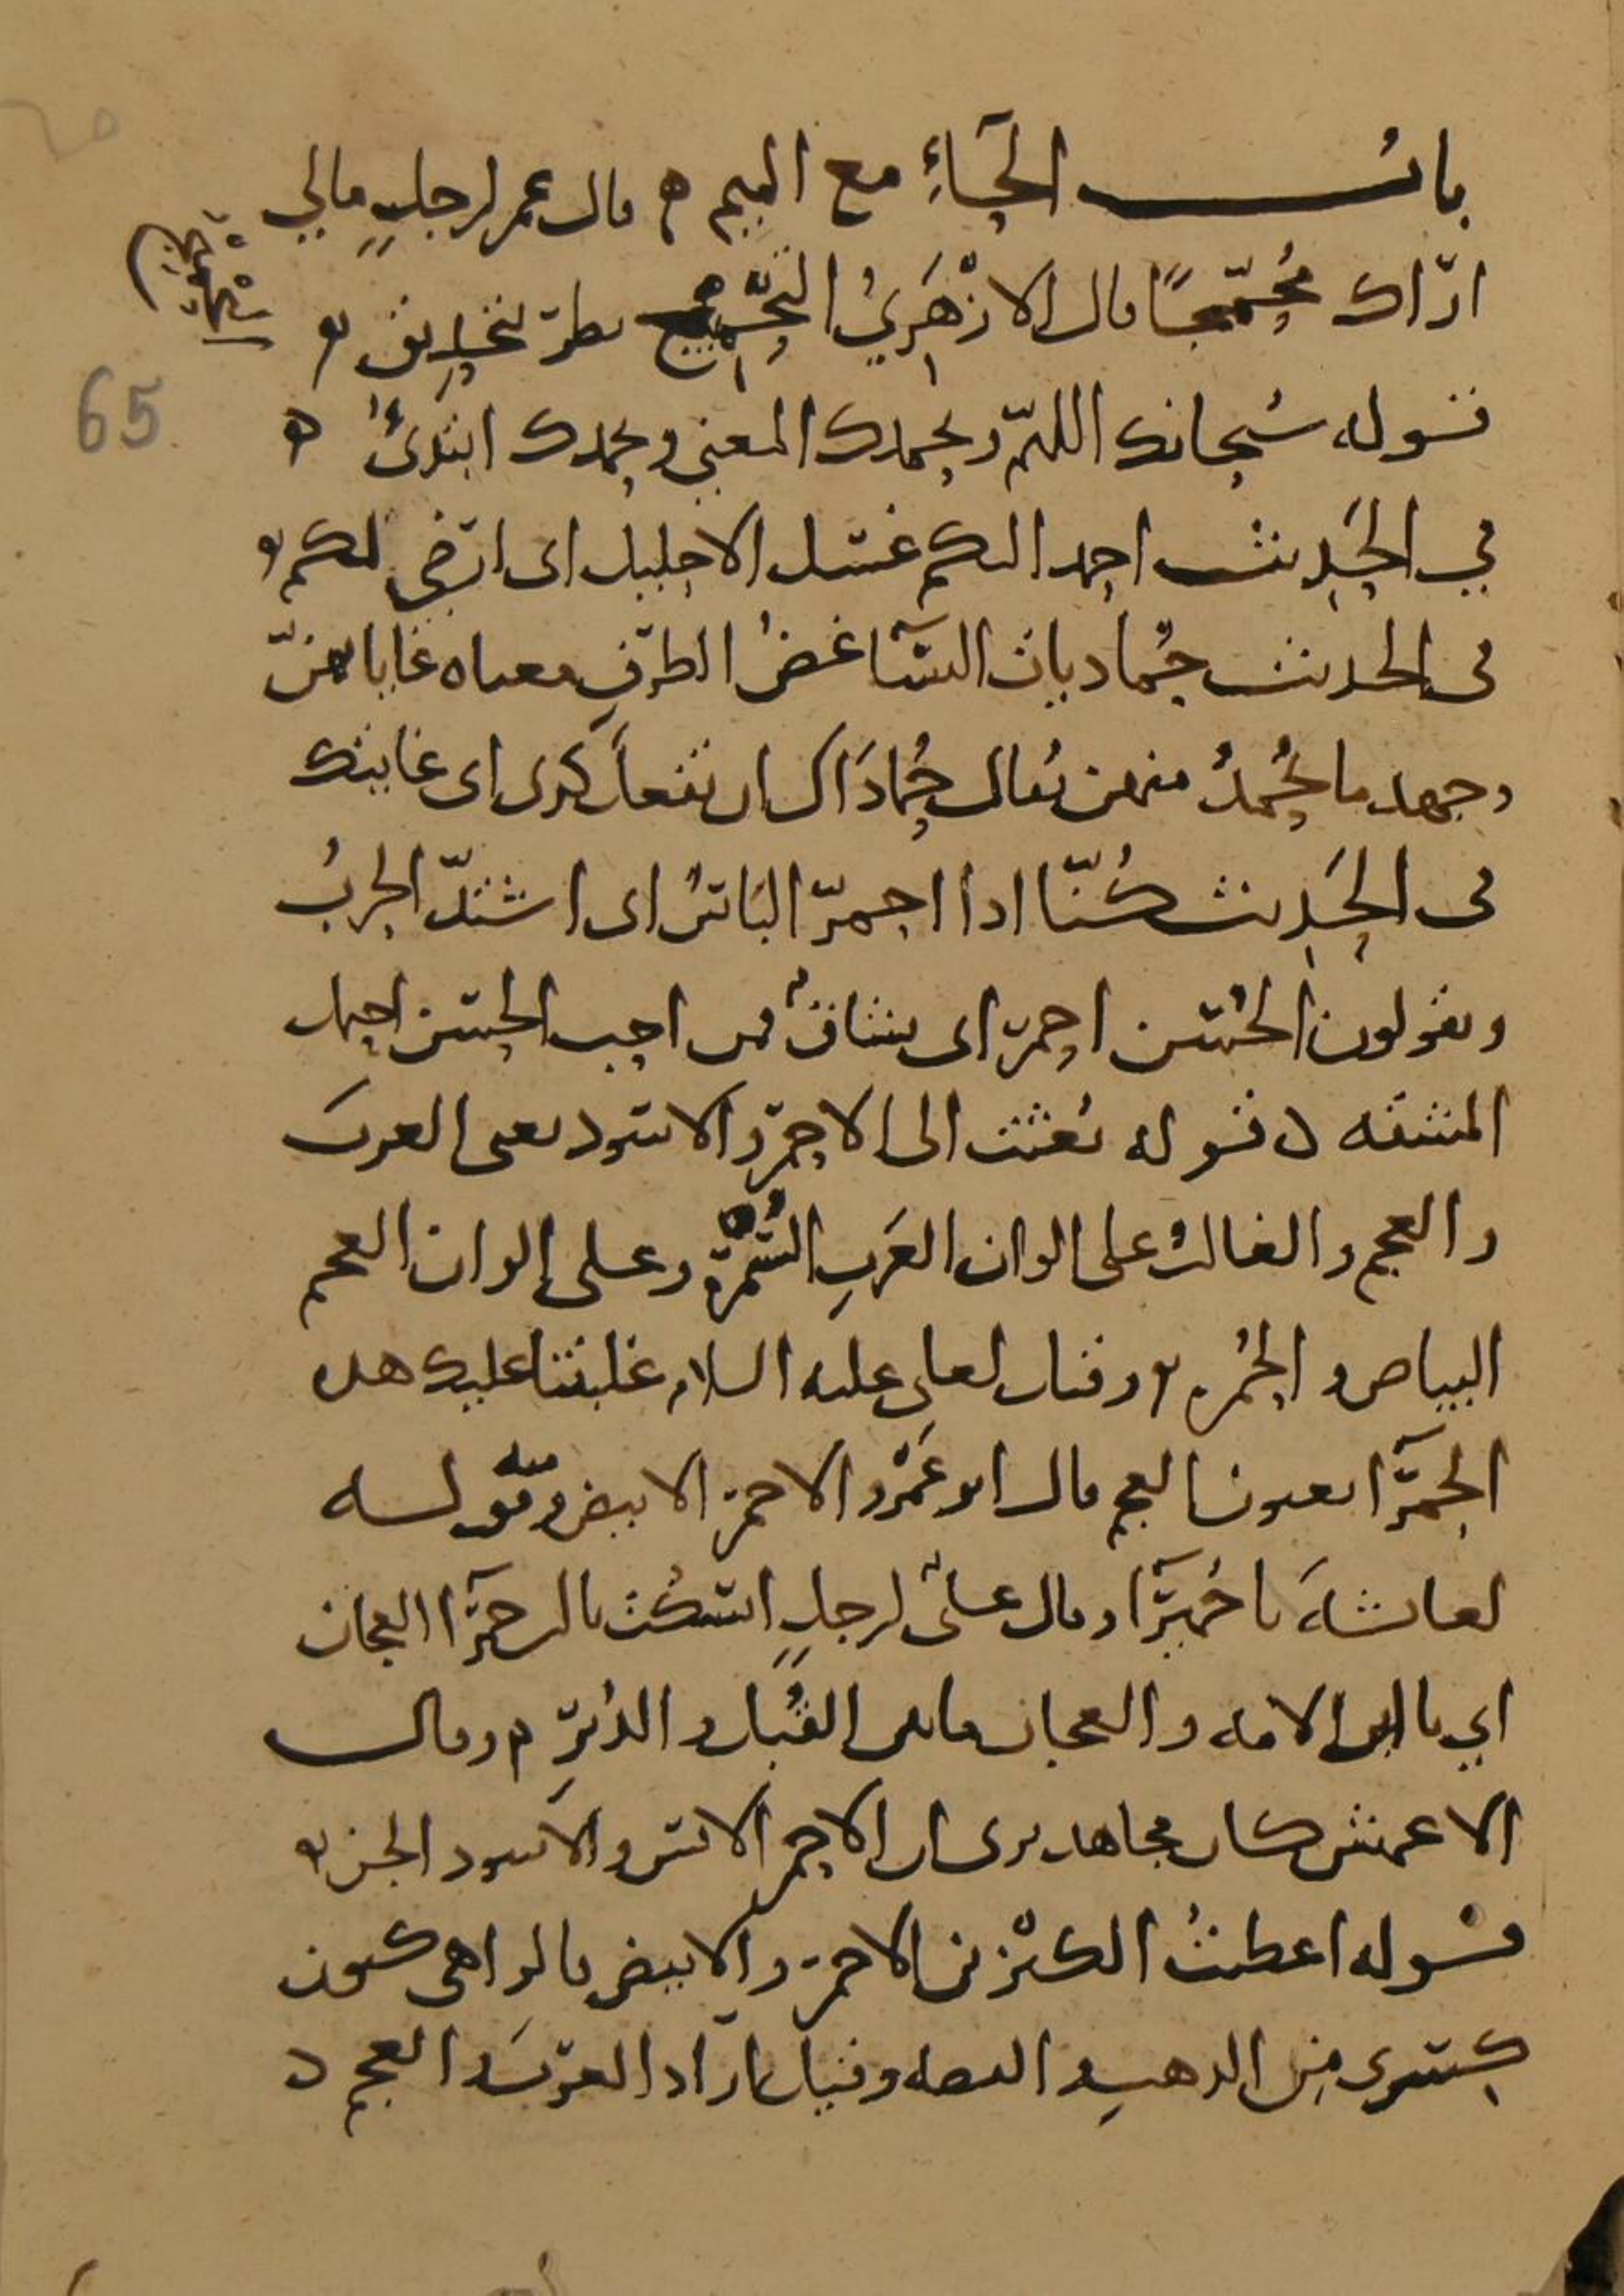 باب الحاء مع الميم ه قال عمر لرجل مالي
اراك محمجا قال الازهري التحميج نظر بتحديق
65
قوله سبحانك اللهم وبحمدك المعنى وبحمدك ابتدئ ه
في الحديث احمد اليكم غسل الاحليل اى ارضى لكم
في الحديث حماديات النسآ غض الطرف معناه غاياتهن
وجهد ما يحمد منهن يقال حماداك ان تفعل كذى اى غايتك
في الحديث كنا اذا احمر البأس اى اشتد الحرب
ويقولون الحسن احمر اى شاق فمن احب الحسن احتمل
المشقه قوله بعثت الى الاحمر والاسود يعنى العرب
والعجم والغالب على الوان العرب السمرة وعلى الوان العجم
البياض والحمره وقيل لعلى عليه السلام غلبتنا عليك هذه
الحمرآ يعنون العجم قال ابو عمرو الاحمر الابيض ومنه قوله
لعائشة يا حميرآ وقال على لرجل اسكت يا ابن حمرآ العجان
اي يا ابن الامه والعجان ما بين القبل والدبر وقال
الاعمش كان مجاهد يرى ان الاحمر الانس والاسود الجن
قوله اعطيت الكنزين الاحمر والابيض قالوا هى كنوز
كسرى من الذهب والفضه وقيل اراد العرب والعجم